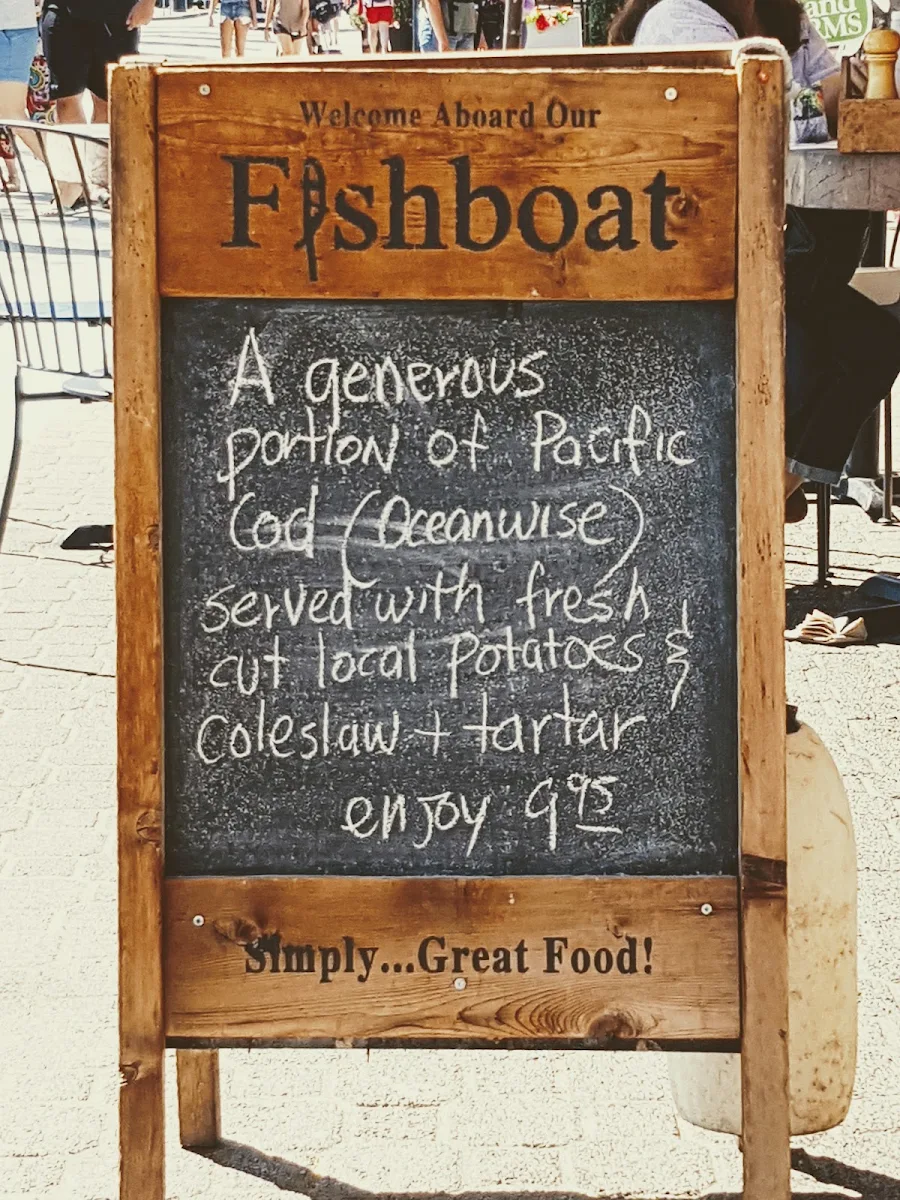 Welcome Aboard Our
Fishboat
A generous
portion of Pacific
Cod (Oceanwise)
served with fresh
cut local potatoes &
Coleslaw + tartar
enjoy 9.95
Simply...Great Food!
and
RMS